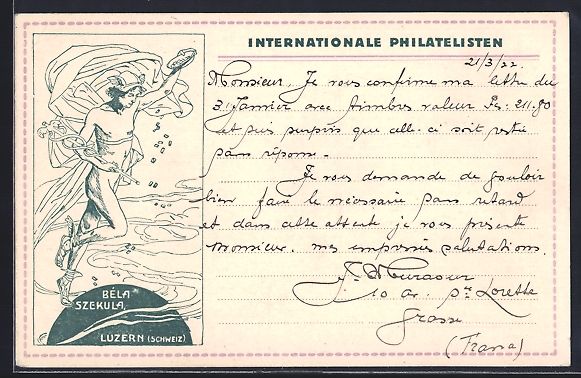 INTERNATIONALE PHILATELISTEN
21/3/22.
Monsieur. Je vous confirme ma lettre du
31 Janvier avec timbres valeur Fs. 211.80
et suis surpris que celle-ci soit restée
sans réponse.
Je vous demande de vouloir
bien faire le nécessaire sans retard
et dans cette attente je vous présente
Monsieur. mes empressées salutations.
10 av. Ste Lorette
Grasse
(France)
BÉLA
SZEKULA,
LUZERN (SCHWEIZ)